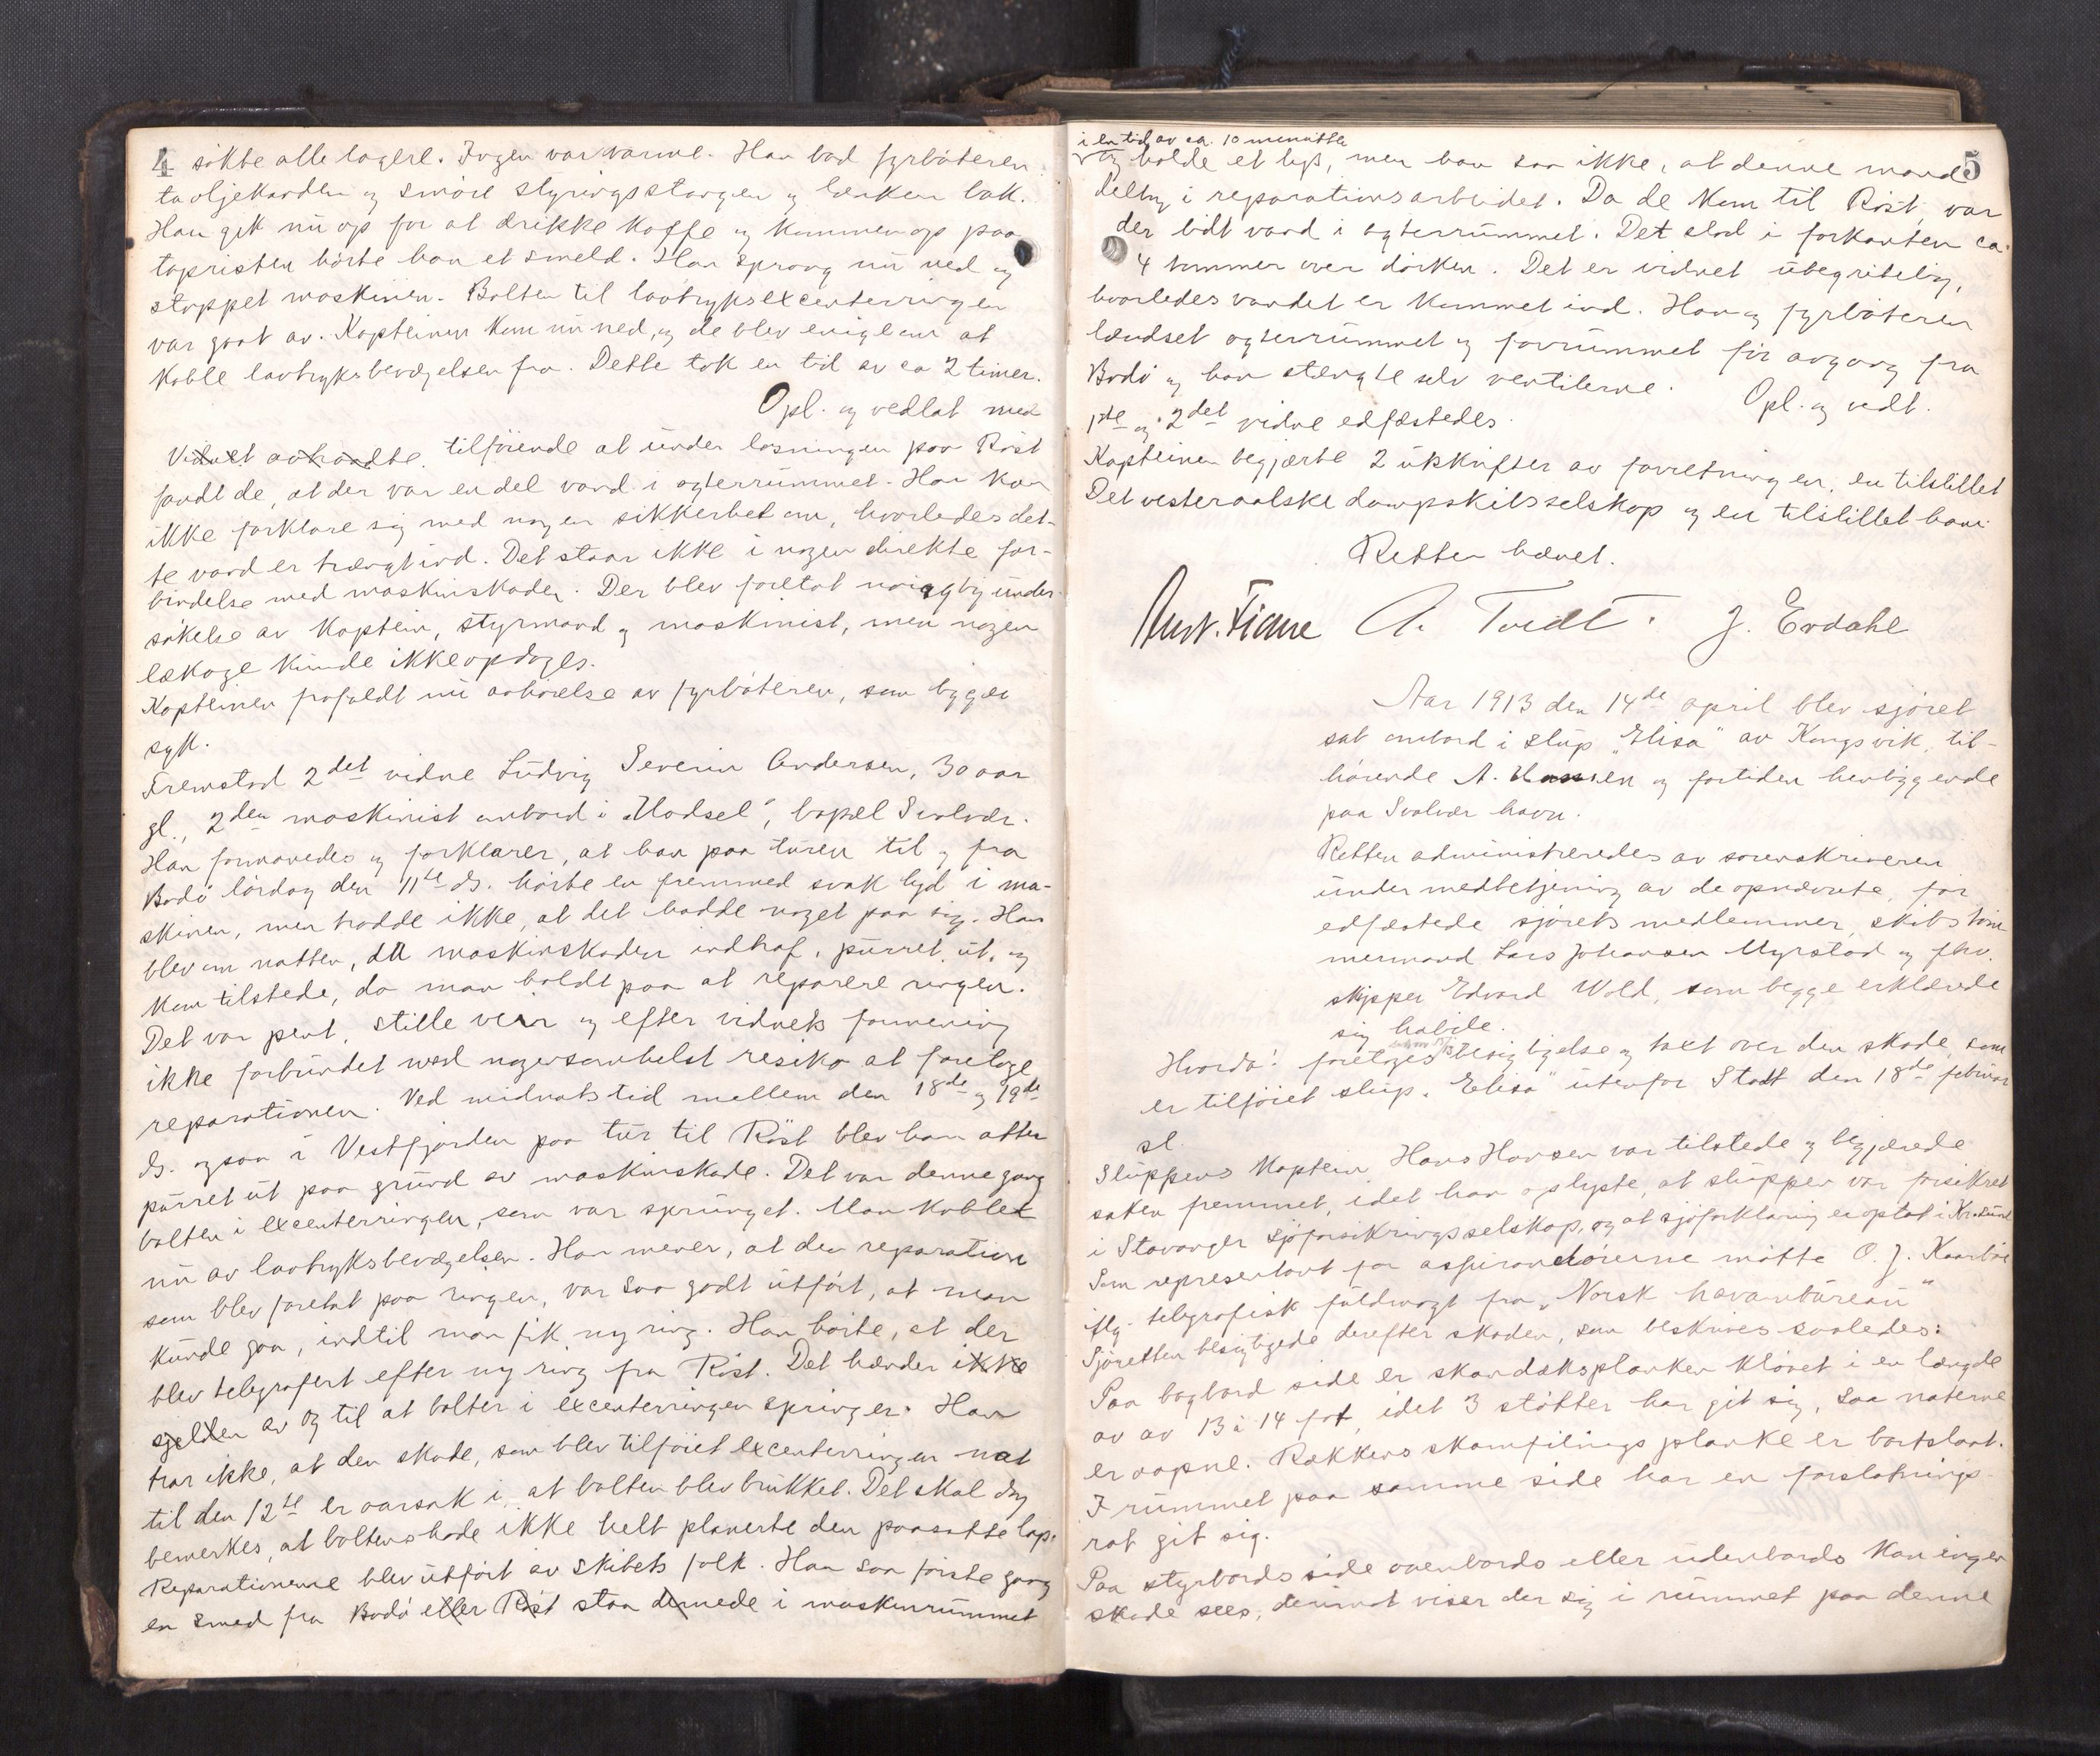 4 søkte alle lagere. Ingen var varme. Han bad fyrbøteren
ta oljekanden og smøre styringsstangen og lænken bak.
Han gik nu op for at drikke kaffe og kommen op paa
topristen hørte han et smeld. Han sprang nu ned og
stoppet maskinen. Bolten til lavtryksexcenterringen
var gaat av. Kapteinen kom nu ned, og de blev enige om at
koble lavtryksbevægelsen fra. Dette tok en tid av ca 2 timer.
Opl. og vedtat med
Vidnet avtraadte. tilføiende at under losningen paa Røst
fandt de, at der var en del vand i agterrummet. Han kan
ikke forklare sig med nogen sikkerhet om, hvorledes det-
te vand er trængt ind. Det staar ikke i nogen direkte for-
bindelse med maskinskaden. Der blev foretat nøiagtig under-
søkelse av kaptein, styrmand og maskinist, men nogen
lækage kunde ikke opdages.
Kapteinen frafaldt nu avhørelse av fyrbøteren, som ligger
syk.
Fremstod 2det vidne Ludvig Severin Andersen, 30 aar
gl., 2den maskinist ombord i "Hadsel", bopæl Svolvær.
Han formanedes og forklarer, at han paa turen til og fra
Bodø lørdag den 11te ds. hørte en fremmed svak lyd i ma-
skinen, men trodde ikke, at det hadde noget paa sig. Han
blev om natten, da maskinskaden indtraf, purret ut, og
kom tilstede, da man holdt paa at reparere ringen.
Det var pent, stille veir og efter vidnets formening
ikke forbundet med nogensomhelst resiko at foretage
reparationen. Ved midnatstid mellem den 18de og 19de
ds. ogsaa i Vestfjorden paa tur til Røst blev han atter
purret ut paa grund av maskinskade. Det var denne gang
bolten i excenterringen, som var sprunget. Man koblet
nu av lavtryksbevægelsen. Han mener, at den reparation
som blev foretat paa ringen, var saa godt utført, at man
kunde gaa, indtil man fik ny ring. Han hørte, at der
blev telegrafert efter ny ring fra Røst. Det hænder ikke
sjelden av og til at bolter i excenterringen springer. Han
tror ikke, at den skade, som blev tilføiet excenterringen nat
til den 12te er aarsak i, at bolten blev brukket. Det skal dog
bemerkes, at boltens hode ikke helt planerte den paasatte lap.
Reparationerne blev utført av skibets folk. Han saa første gang
en smed fra Bodø eller Røst staa dernede i maskinrummet
i en tid av ca. 10 minutter
5
og holde et lys, men han saa ikke, at denne mand
deltog i reparationsarbeidet. Da de kom til Røst, var
der litt vand i agterrummet. Det stod i forkanten ca.
4 tommer over dørken. Det er vidnet ubegripelig,
hvorledes vandet er kommet ind. Han og fyrbøteren
lændset agterrummet og forrummet før avgang fra
Bodø og han stængte selv ventilerne. Opl. og vedt.
1ste og 2det vidne edfæstedes.
Kapteinen begjærte 2 utskrifter av forretningen, en tilstillet
Det vesteraalske dampskibsselskap og en tilstillet ham.
Retten hævet.
Fiane A. Tvedt. J. Erdahl
Aar 1913 den 14de april blev sjøret
sat ombord i slup "Elisa" av Kongsvik, til-
hørende A. Hansen og fortiden henliggende
paa Svolvær havn.
Retten administreredes av sorenskriveren
under medbetjening av de opnævnte, før
edfæstede sjørets medlemmer, skibstøm-
mermand Lars Johansen Myrstad og fhv.
skipper Edvard Wold, som begge erklærede
sig habile.
Hvorda: foretoges besigtigelse og taxt over den skade, som
er tilføiet slup. "Elisa" utenfor Stadt den 18de februar
sl.
Sluppens kaptein Hans Hansen var tilstede og begjærede
saken fremmet, idet han oplyste, at sluppen var forsikret
i Stavanger Sjøforsikringsselskap, og at sjøforklaring er optat i Kr.sund
Som representant for assurandørerne møtte O. J. Kaarbø
iflg. telegrafisk fuldmagt fra "Norsk havaribureau"
Sjøretten besigtigede derefter skaden, som beskrives saaledes:
Paa bagbord side er skandæksplanken kløvet i en længde
av av 13 à 14 fot, idet 3 støtter har git sig, saa naterne
er aapne. Rækkens skamfilings planke er bortslaat.
I rummet paa samme side har en forslatnings-
nat git sig.
Paa styrbords side ovenbords eller udenbords kan ingen
skade sees; derimot viser der sig i rummet paa denne